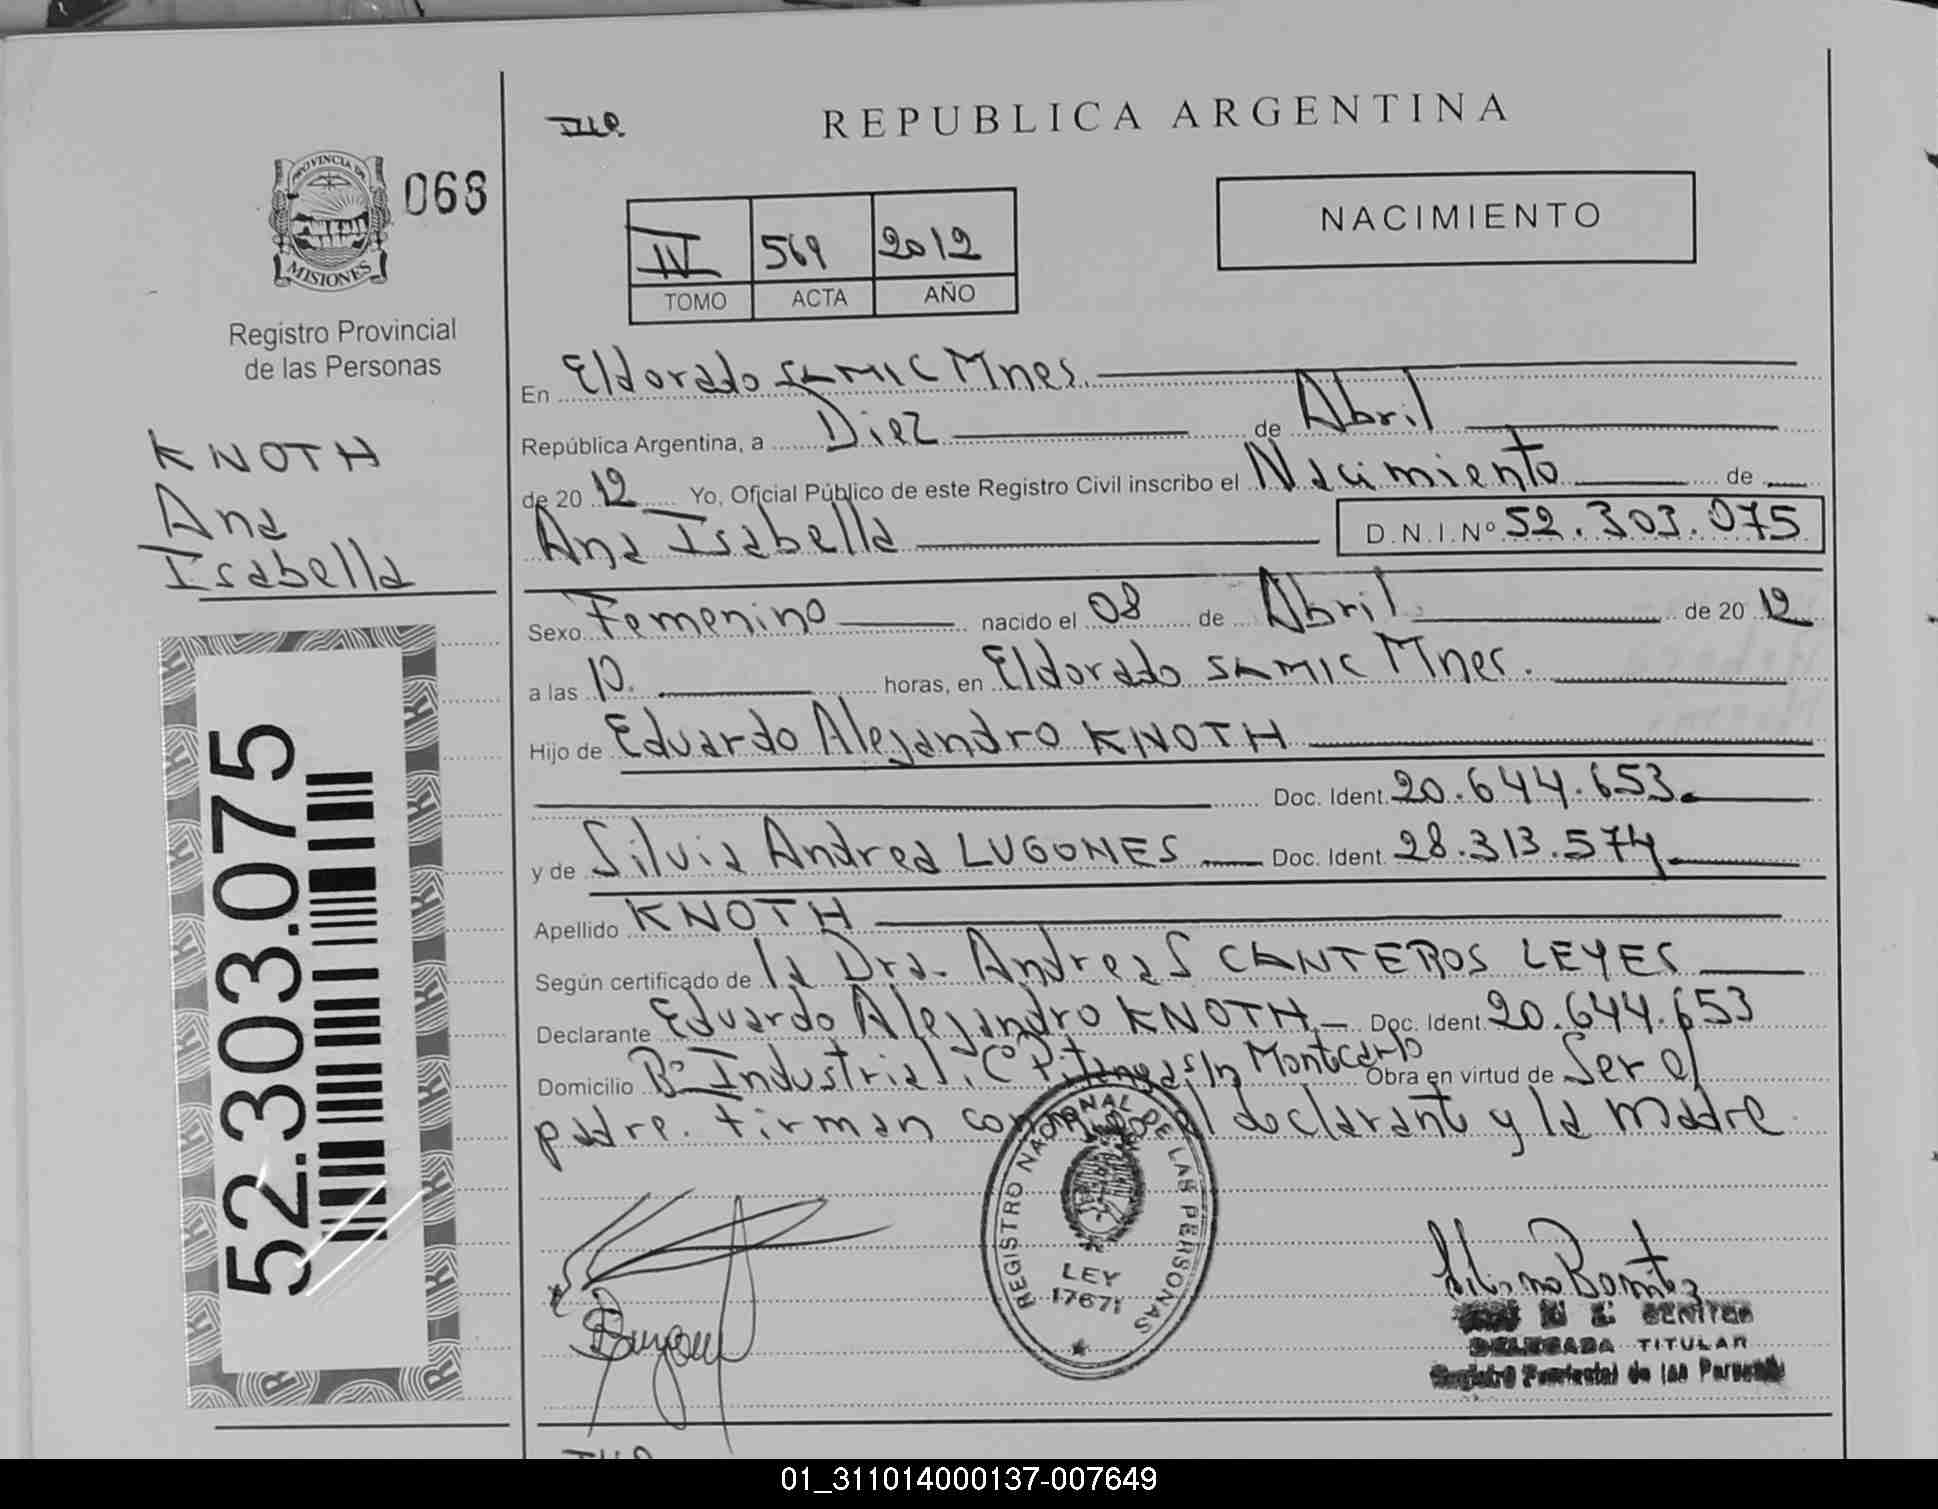 I.H.P.
REPUBLICA ARGENTINA
PROVINCIA DE
MISIONES
068
NACIMIENTO
IV 569 2012
TOMO ACTA AÑO
Registro Provincial
de las Personas
KNOTH
Ana
Isabella
52.303.075
En Eldorado SAMIC Mnes.
República Argentina, a Diez de Abril
de 20 12 Yo, Oficial Público de este Registro Civil inscribo el Nacimiento de
Ana Isabella D.N.I.Nº 52.303.075
Sexo Femenino nacido el 08 de Abril de 20 12
a las 10. horas, en Eldorado SAMIC Mnes.
Hijo de Eduardo Alejandro KNOTH
Doc. Ident. 20.644.653
y de Silvia Andrea LUGONES Doc. Ident. 28.313.574
Apellido KNOTH
Según certificado de la Dra. Andrea S CANTEROS LEYES
Declarante Eduardo Alejandro KNOTH Doc. Ident. 20.644.653
Domicilio Bº Industrial, Cº Pitangas/n Montecarlo Obra en virtud de Ser el
padre. firman conmigo el declarante y la madre
REGISTRO NACIONAL DE LAS PERSONAS
LEY
17671
BENITEZ
DELEGADA TITULAR
Registro Provincial de las Personas
01_311014000137-007649